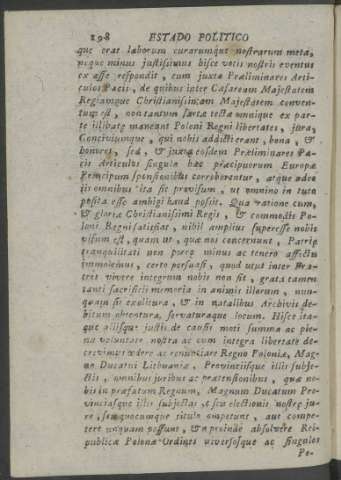 298 ESTADO POLITICO
que erat laborum curarumque nostrarum meta,
neque minus justissimis hisce votis nostris eventus
ex asse respondit, cum juxta Præliminares Arti-
culos Pacis, de quibus inter Cæsaream Majestatem
Regiamque Christianissimam Majestatem conven-
tum est, non tantum sarta tecta omnique ex par-
te illibata maneant Poloni Regni libertates, jura,
Conciviumque, qui nobis addicti erant, bona, &
honores, sed, & juxta eosdem Præliminares Pa-
cis Articulos singula hæc præcipuorum Europæ
Principum sponsionibus corroborentur, atque adeo
iis omnibus ita sit provisum, ut omnino in tuto
posita esse ambigi haud possit. Qua ratione cum,
& gloriæ Christianissimi Regis, & commodis Po-
loni Regni satisfiat, nihil amplius superesse nobis
visum est, quam ut, qua nos concernunt, Patriæ
tranquilitati non parcè minus ac tenero affectu
immolemus, certo persuasi, quod utut inter
vivere integrum nobis non sit, grata tamen
tanti sacrificii memoria in animis illarum, nun-
quam sit exolitura, & in natalibus Archivis de-
bitum obtentura, servaturaque locum. Hisce ita-
que aliisque justis de causis moti summa ac ple-
na voluntate nostra ac cum integra libertate de-
crevimus cedere ac renuntiare Regno Poloniæ, Mag-
no Ducatui Lithuaniæ, Provinciisque illis subje-
ctis, omnibus juribus ac prætensionibus, quæ no-
bis in præfatum Regnum, Magnum Ducatum Pro-
vinciasque illis subjectas, ex seu electionis nostræ ju-
re, seu quocumque titulo competunt, aut compe-
tere unquam possunt, & proinde absolvere Rei-
publicæ Polonæ Ordines universosque ac singulos
Po-